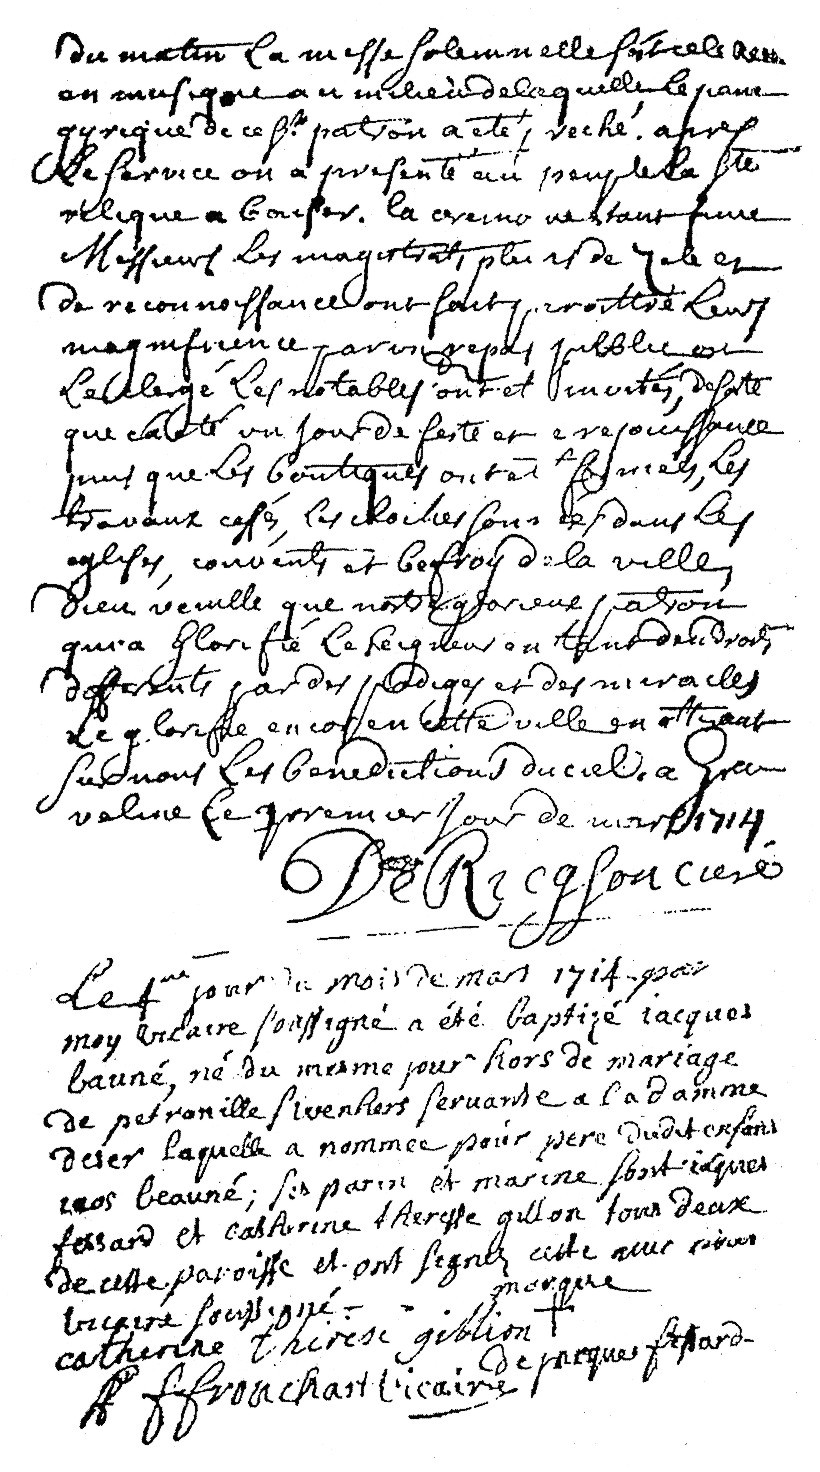 du matin la messe solemnelle fut cele bree
en musique au milieu de laquelle le pane
gyrique de ce st patron a ete preché. apres
le service on a presenté au peuple la ste
relique a baiser. la ceremo nie estant finie
Messieurs les magistrats pleins de zele et
de reconnoissance ont fait paroittre leurs
magnificence par un repas publicq ou
le clergé les notables ont eté invités, de sorte
que c'a eté un jour de feste et de rejouissance
puis que les boutiques ont eté fermées, les
travaux cessés, les cloches sonnées dans les
eglises, couvents et beffroy de la ville,
Dieu veuille que nostre glorieux patron
qui a glorifié le seigneur en tant dendroits
differents par des prodiges et des miracles
le glorifie encor en cette ville en attirant
sur nous les benedictions du ciel. a Gra
veline le premier jour de mars 1714
De Ricqson curé
Le 1me jour du mois de mars 1714 par
moy vicaire soussigné a été baptizé iacques
bauné, né du mesme jour hors de mariage
de petronille sivenhers servante a la damme
deser laquelle a nommee pour pere dudit enfant
beauné; ses parin et marine sont iaques
fessard et catherine theresse gillon tous deux
de cette paroisse et ont segnez cette avec
vicaire soussigné
marque
catherine therese giblion †
de jacques fessard
ff frouchart vicaire